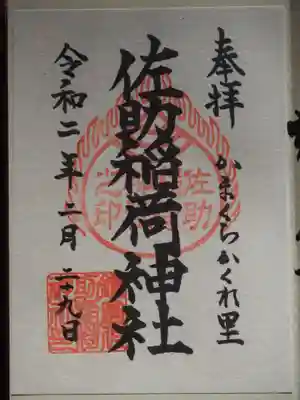 奉拝
かまくらかくれ里
佐助稲荷神社
佐助
之印
令和二年二月二十九日